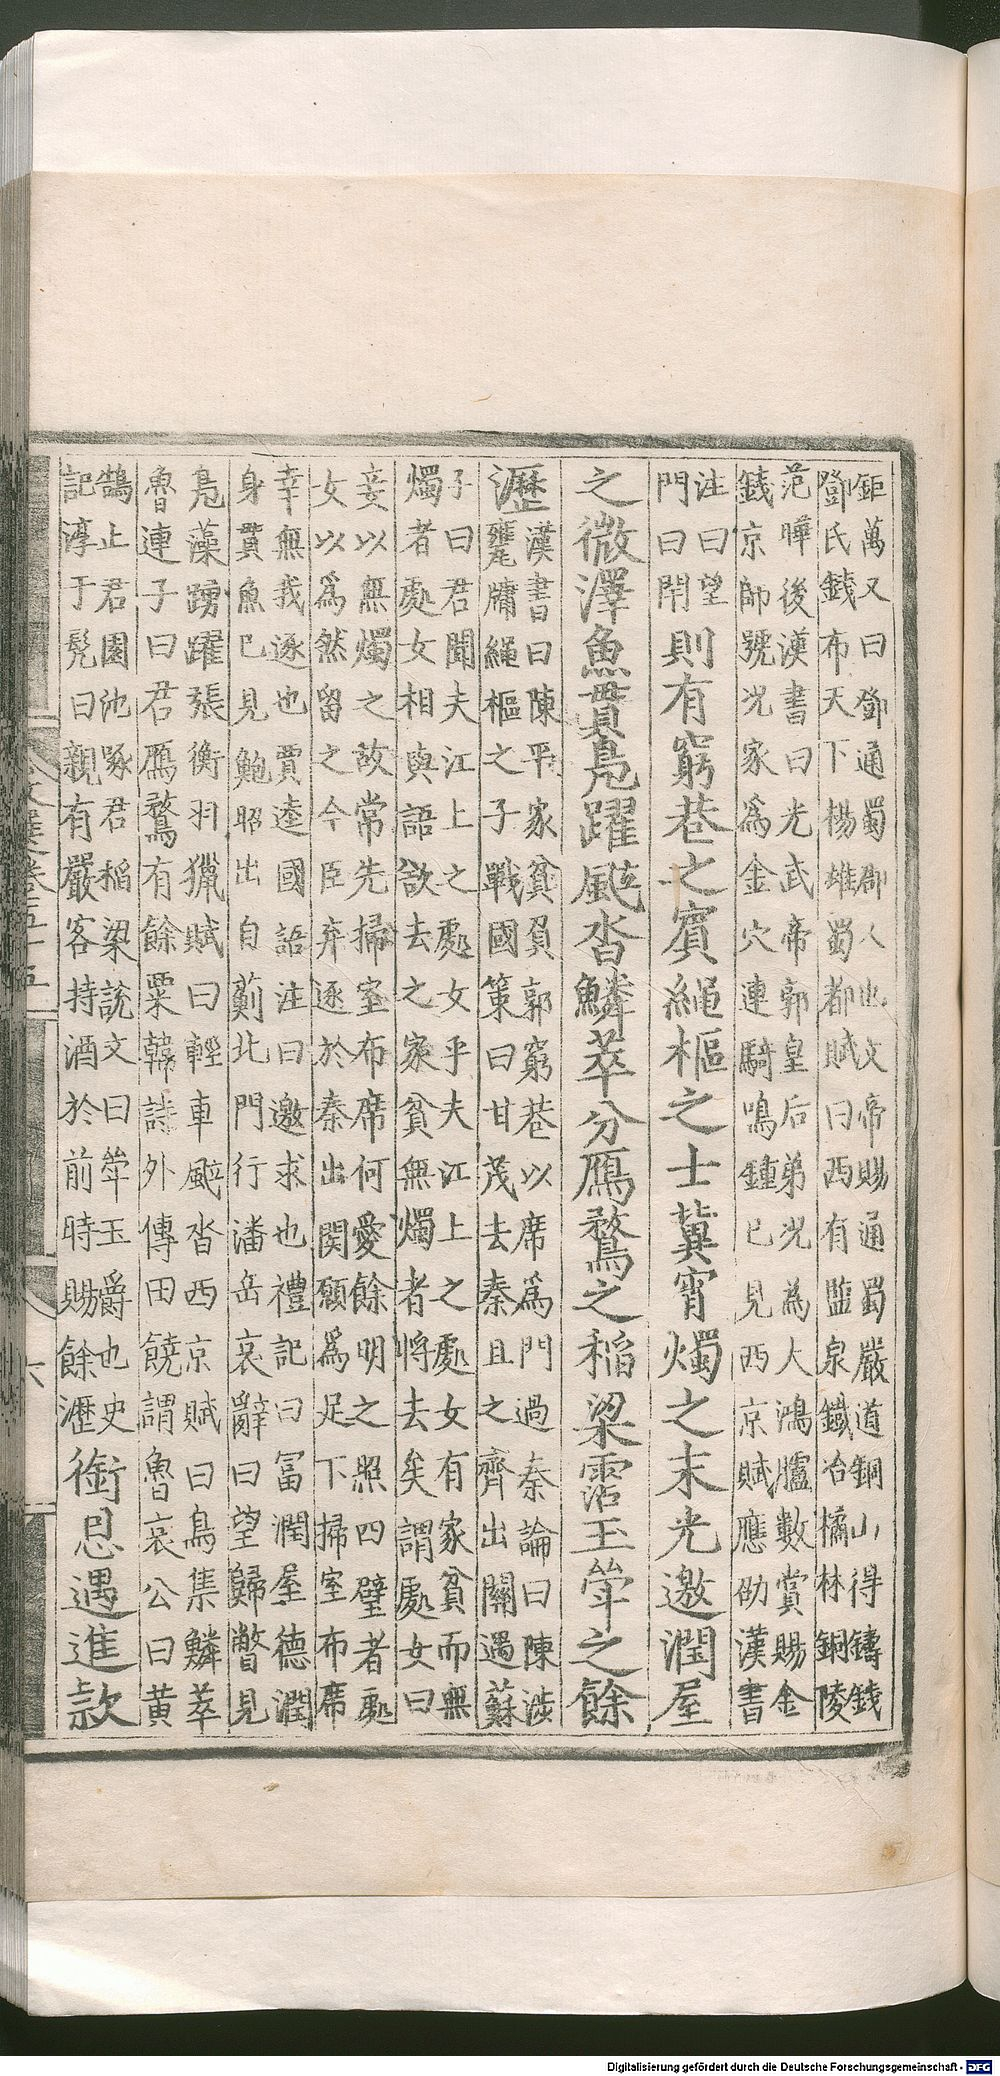 鉅萬又曰鄧通蜀郡人也文帝賜通蜀嚴道銅山得鑄錢
鄧氏錢布天下楊雄蜀都賦曰西有監泉鐵冶橘林銅陵
范曄後漢書曰光武帝郭皇后弟况為大鴻臚數賞賜金
錢京師號况家為金穴連騎鳴鍾已見西京賦應劭漢書
注曰望
門曰閈
則有窮巷之賓繩樞之士冀宵燭之末光邀潤屋
之微澤魚貫鳧躍颯沓鱗萃分鴈鶩之稻粱霑玉斝之餘
瀝
漢書曰陳平家貧負郭窮巷以席為門過秦論曰陳涉
甕牖繩樞之子戰國策曰甘茂去秦且之齊出關遇蘇
子曰君聞夫江上之處女乎夫江上之處女有家貧而無
燭者處女相與語欲去之家貧無燭者將去矣謂處女曰
妾以無燭之故常先掃室布席何愛餘明之照四壁者處
女以為然留之今臣弃逐於秦出関願為足下掃室布席
幸無我逐也賈逵國語注曰邀求也禮記曰冨潤屋德潤
身貫魚已見鮑昭出自薊北門行潘岳哀辭曰望歸瞥見
鳧藻踴躍張衡羽獵賦曰輕車颷沓西京賦曰鳥集鱗萃
魯連子曰君鴈鶩有餘粟韓詩外傳田饒謂魯哀公曰黄
鵠止君園池啄君稻粱說文曰斝玉爵也史
記淳于髡曰親有嚴客持酒於前時賜餘瀝
銜恩遇進款
文選卷五十五
六
Digitalisierung gefördert durch die Deutsche Forschungsgemeinschaft - DFG